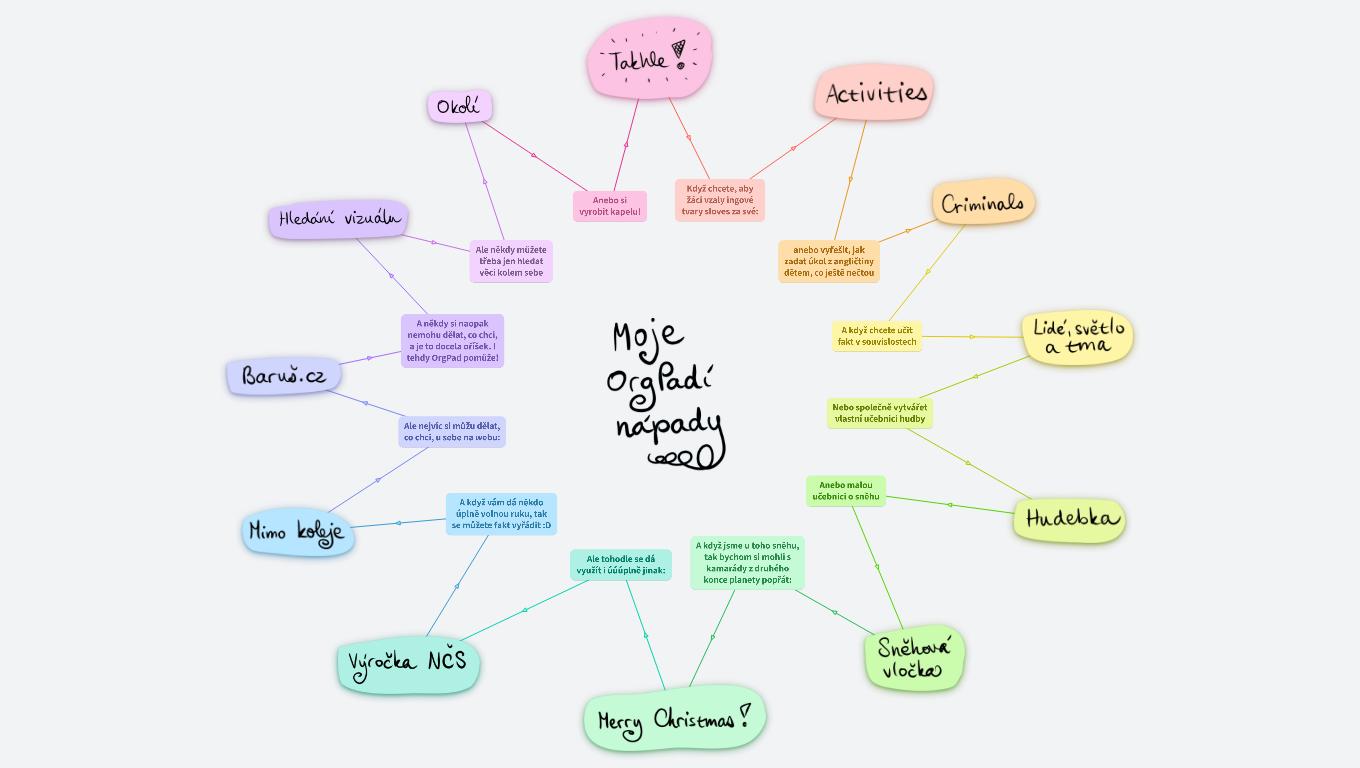 Moje
OrgPadí
nápady
Takhle!
Když chcete, aby
žáci vzaly ingové
tvary sloves za své:
Activities
anebo vyřešit, jak
zadat úkol z angličtiny
dětem, co ještě nečtou
Criminals
A když chcete učit
fakt v souvislostech
Lidé, světlo
a tma
Nebo společně vytvářet
vlastní učebnici hudby
Hudebka
Anebo malou
učebnici o sněhu
Sněhová
vločka
A když jsme u toho sněhu,
tak bychom si mohli s
kamarády z druhého
konce planety popřát:
Merry Christmas!
Ale tohodle se dá
využít i úúúplně jinak:
Výročka NČS
A když vám dá někdo
úplně volnou ruku, tak
se můžete fakt vyřádit :D
Mimo koleje
Ale nejvíc si můžu dělat,
co chci, u sebe na webu:
Baruš.cz
A někdy si naopak
nemohu dělat, co chci,
a je to docela oříšek. I
tehdy OrgPad pomůže!
Hledání vizuálu
Ale někdy můžete
třeba jen hledat
věci kolem sebe
Okolí
Anebo si
vyrobit kapelu!